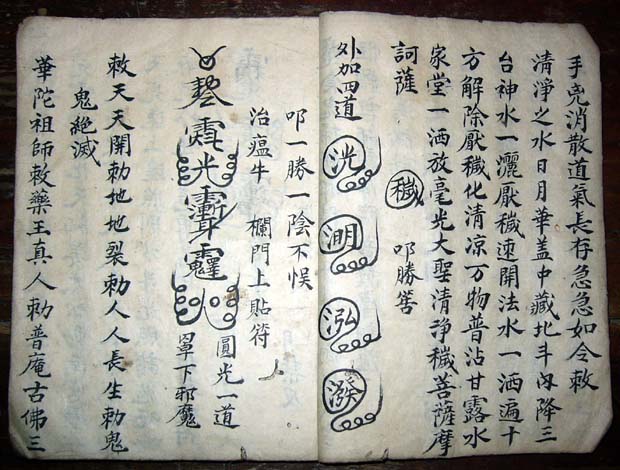 手消散道氣長存急急如令敕
清淨之水日月華盖中藏北斗內降三
台神水一灑厭穢速開法水一洒遍十
方解除厭穢化清凉万物普沾甘露水
家堂一洒放毫光大聖清淨穢菩薩摩
訶薩 穢 叩勝筶
外加四道 洸 泓 潑
叩一勝一陰不悮
治瘟牛 欄門上貼符
圓光一道
罩下邪魔
光
敕天天開勅地地裂勅人人長生勅鬼
鬼絕滅
華陀祖師敕藥王真人勅普庵古佛三